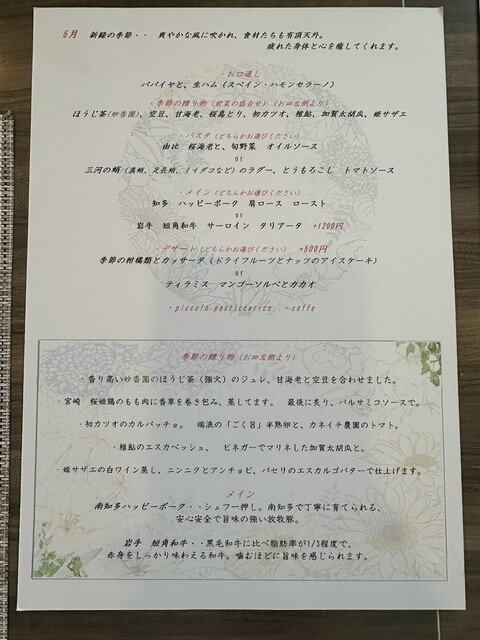 5月　新緑の季節・・　爽やかな風に吹かれ、食材たちも有頂天外。
疲れた身体と心を癒してくれます。
・お口通し
パパイヤと、生ハム（スペイン・ハモンセラーノ）
・季節の贈り物（前菜の盛合せ）（お皿左側より）
ほうじ茶(妙香園)、空豆、甘海老、桜島とり、初カツオ、稚鮎、加賀太胡瓜、姫サザエ
・パスタ（どちらかお選びください）
由比　桜海老と、旬野菜　オイルソース
or
三河の蛸（真蛸、足長蛸、イイダコなど）のラグー、とうもろこし　トマトソース
・メイン（どちらかお選びください）
知多　ハッピーポーク　肩ロース　ロースト
or
岩手　短角和牛　サーロイン　タリアータ　+1200円
・デザート（どちらかお選びください）　+500円
季節の柑橘類とカッサータ（ドライフルーツとナッツのアイスケーキ）
or
ティラミス　マンゴーソルベとカカオ
・piccola pasticceria　・caffe
季節の贈り物（お皿左側より）
・香り高い妙香園のほうじ茶（強火）のジュレ、甘海老と空豆を合わせました。
・宮崎　桜姫鶏のもも肉に香草を巻き込み、蒸してます。　最後に炙り、バルサミコソースで。
・初カツオのカルパッチョ。　瑞浪の「ごく旨」半熟卵と、カネイチ農園のトマト。
・稚鮎のエスカベッシュ、　ビネガーでマリネした加賀太胡瓜と。
・姫サザエの白ワイン蒸し、ニンニクとアンチョビ、パセリのエスカルゴバターで仕上げます。
メイン
南知多ハッピーポーク・・シェフ一押し。南知多で丁寧に育てられる、
安心安全で旨味の強い放牧豚。
岩手　短角和牛・・黒毛和牛に比べ脂肪率が1/3程度で、
赤身をしっかり味わえる和牛。噛むほどに旨味を感じられます。